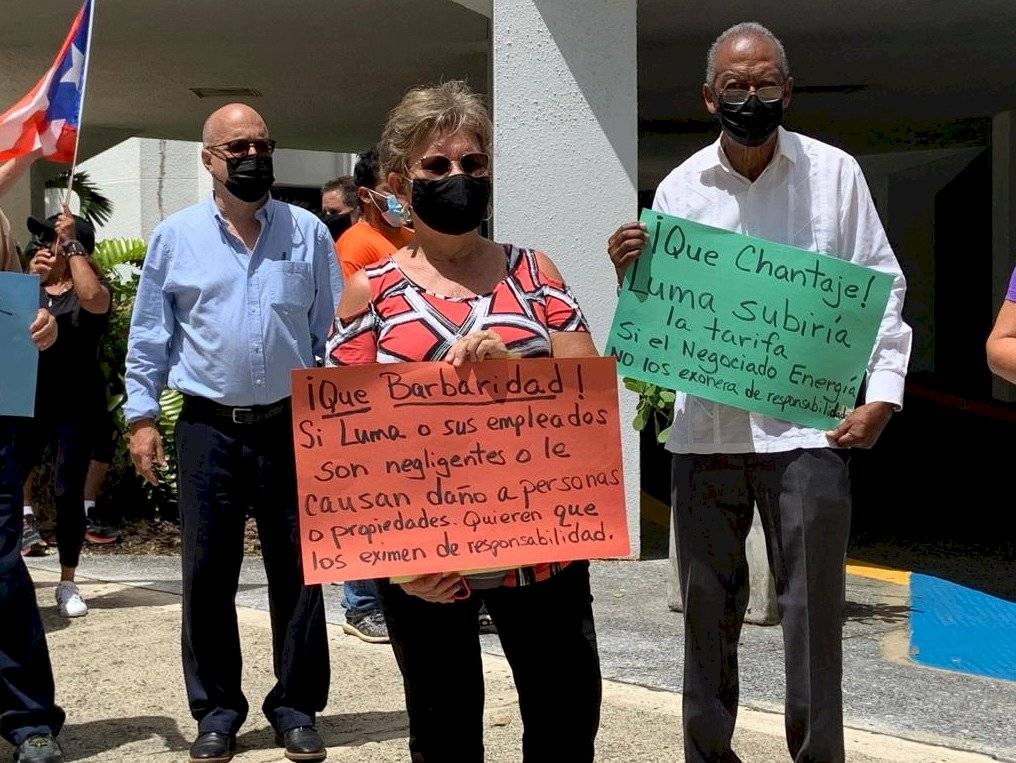 ¡Que Barbaridad!
Si Luma o sus empleados
son negligentes o le
causan daño a personas
o propiedades. Quieren que
los eximen de responsabilidad.
¡Que Chantaje!
Luma subiría
la tarifa
Si el Negociado Energía
NO los exonera de responsabilidad